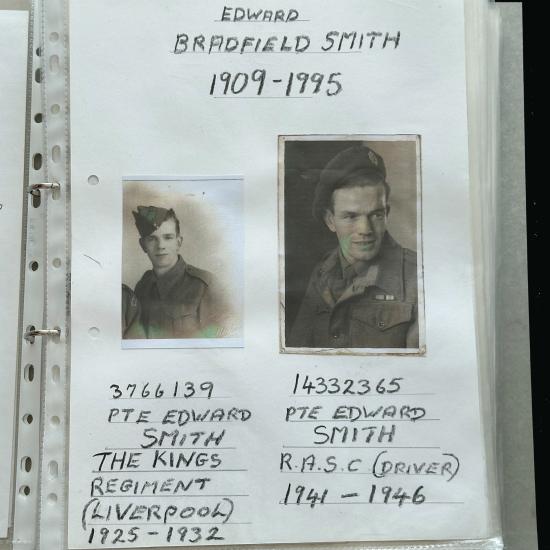 EDWARD
BRADFIELD SMITH
1909-1995
3766139
PTE EDWARD
SMITH
THE KINGS
REGIMENT
(LIVERPOOL)
1925-1932
14332365
PTE EDWARD
SMITH
R.A.S.C (DRIVER)
1941-1946